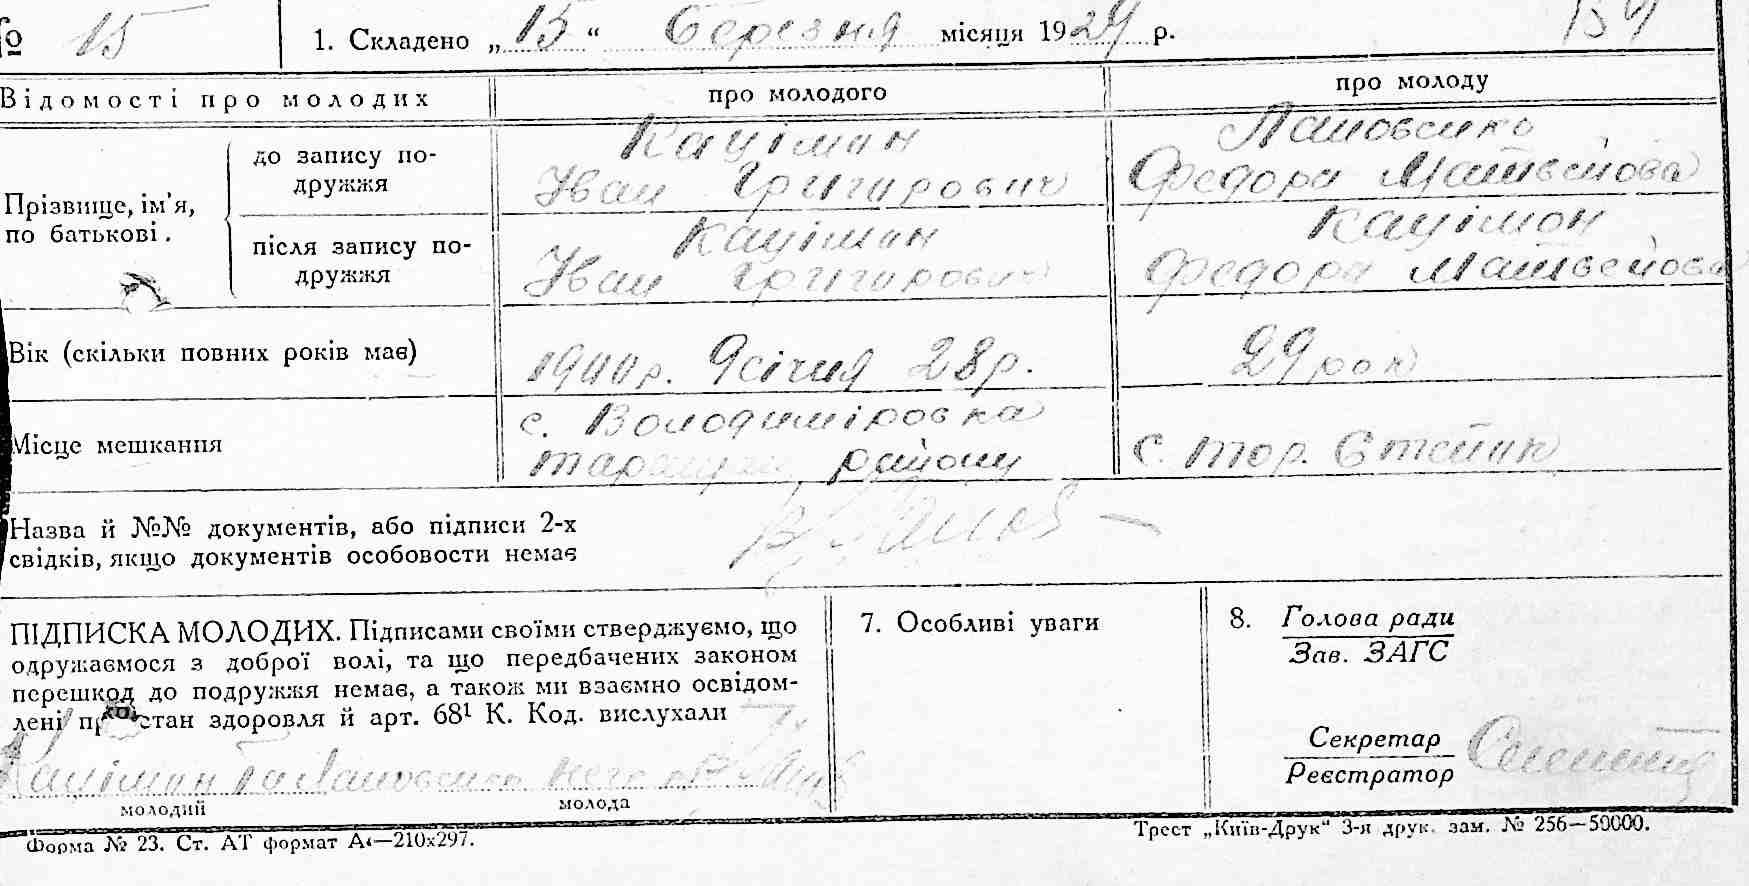 № 15 1. Складено „15“ Березня місяця 1929 р.
Відомості про молодих про молодого про молоду
Прізвище, ім’я, по батькові.
до запису по-
дружжя
Каціман
Іван Григорович
Лановсько
Федора Матвейова
після запису по-
дружжя
Каціман
Іван Григорович
Кацімон
Федора Матвейова
Вік (скільки повних років має) 1900р. 9 січня 28р. 29 рок
Місце мешкання
с. Володиміровка
району
с. тор.
Назва й №№ документів, або підписи 2-х
свідків, якщо документів особовости немає
ПІДПИСКА МОЛОДИХ. Підписами своїми стверджуємо, що
одружаємося з доброї волі, та що передбачених законом
перешкод до подружжя немає, а також ми взаємно освідом-
лені про стан здоровля й арт. 68¹ К. Код. вислухали
Каціман та Лановсько
молодий молода
7. Особливі уваги
8. Голова ради
Зав. ЗАГС
Секретар
Реєстратор
Форма № 23. Ст. АТ формат А4—210х297.
Трест „Київ-Друк“ 3-я друк. зам. № 256—50000.